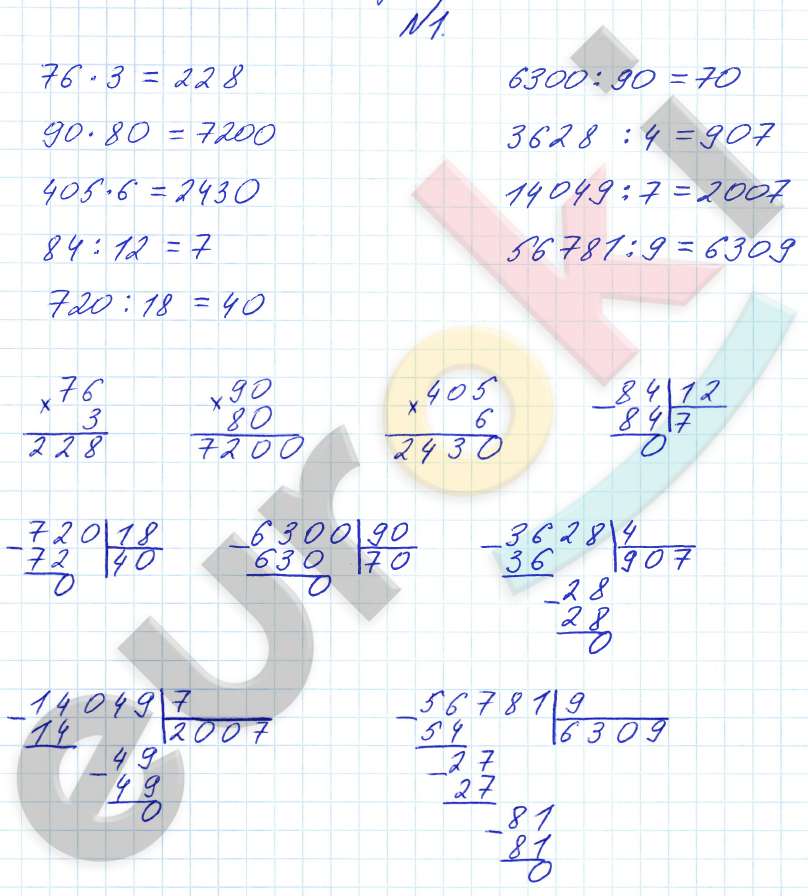 №1.
76 · 3 = 228
90 · 80 = 7200
405 · 6 = 2430
84 : 12 = 7
720 : 18 = 40
6300 : 90 = 70
3628 : 4 = 907
14049 : 7 = 2007
56781 : 9 = 6309
76
× 3
228
90
× 80
7200
405
× 6
2430
− 84 | 12
84 | 7
0
− 720 | 18
72 | 40
0
− 6300 | 90
630 | 70
0
− 3628 | 4
36 | 907
− 28
28
0
− 14049 | 7
14 | 2007
− 49
49
0
− 56781 | 9
54 | 6309
− 27
27
− 81
81
0
euroki